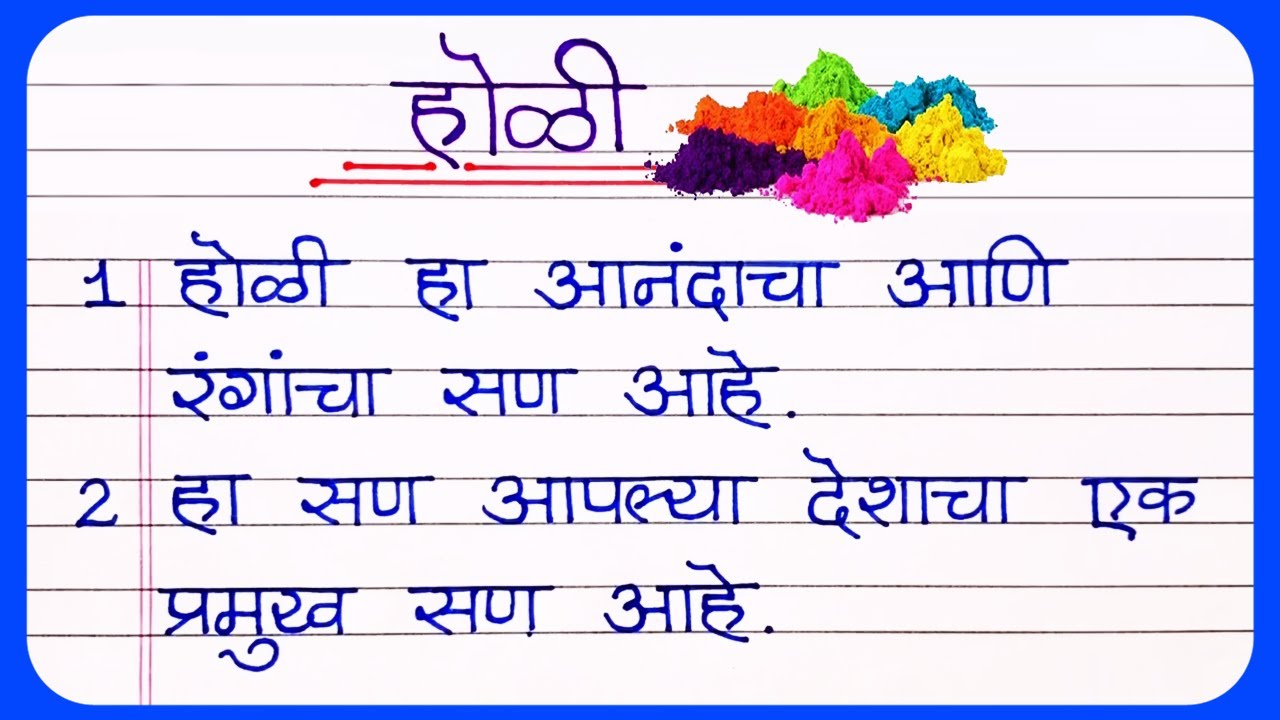 होळी
1 होळी हा आनंदाचा आणि
रंगांचा सण आहे.
2 हा सण आपल्या देशाचा एक
प्रमुख सण आहे.